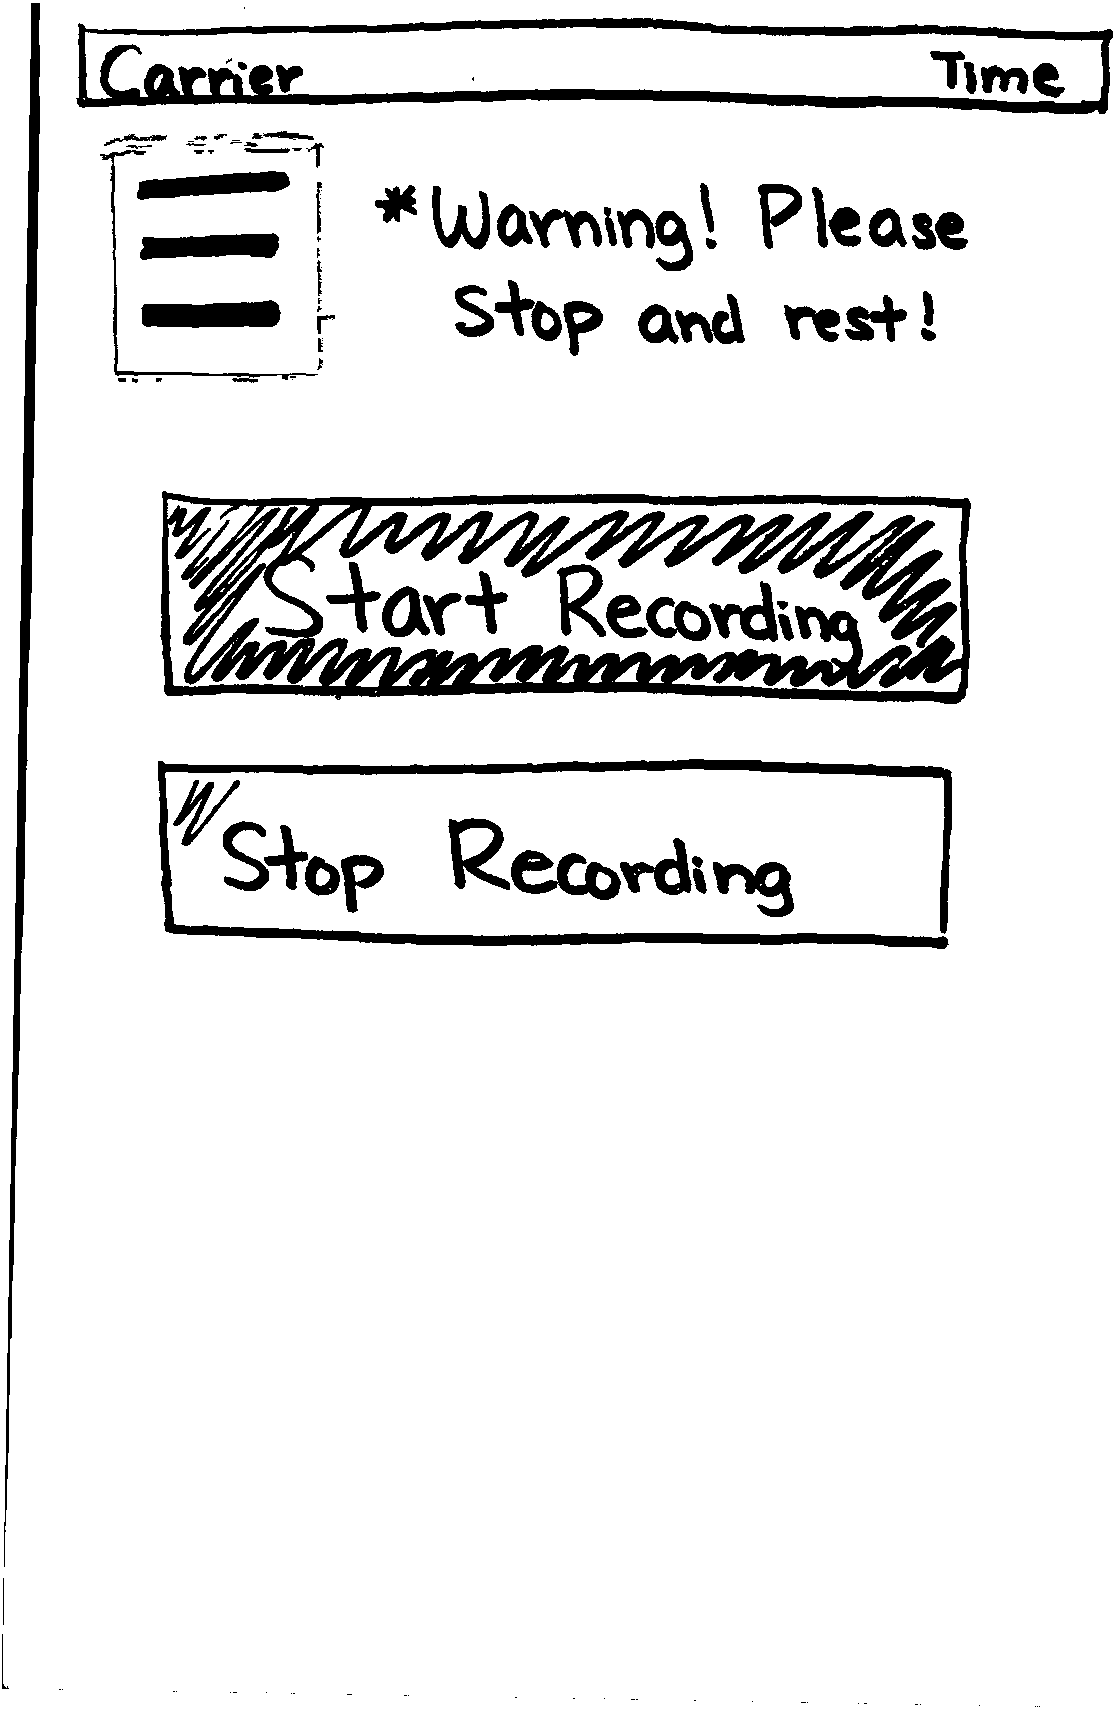 Carrier Time
*Warning! Please
Stop and rest!
Start Recording
Stop Recording